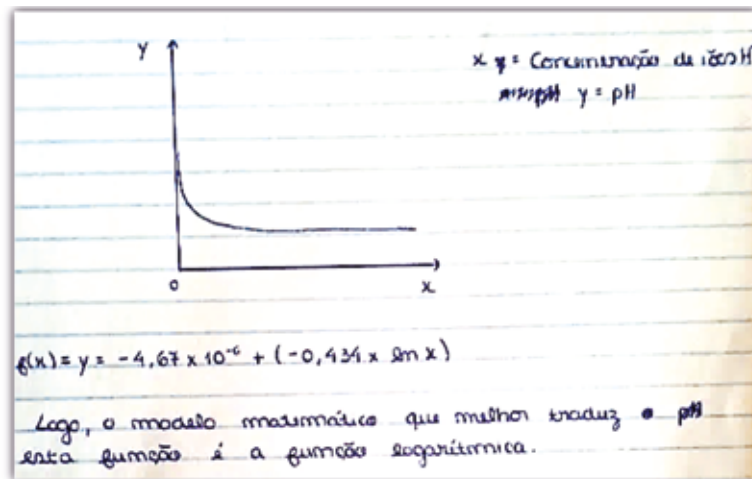 y
x y = Concentração de iões H
y = pH
0
x
f(x) = y = -4,67 x 10⁻⁶ + (-0,434 x ln x)
Logo, o modelo matemático que melhor traduz o pH
esta função é a função logarítmica.